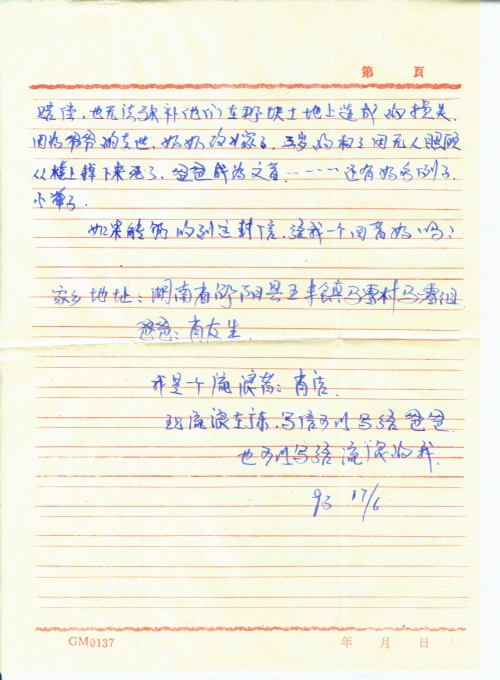 第 頁
赔偿，也无法弥补他们在那块土地上造成的损失。
因为爷爷的去世，奶奶改嫁了，三岁的 因无人照顾
从楼上掉下来死了，爸爸成为文盲……还有好多例子，
小辈子。
如果能够的到这封信，给我一个回音好吗？
家乡地址：湖南省 阳县 丰镇马 村马 组
爸爸：肖友生
我是一个流浪者：肖 .
现流浪 ，写信可以写给爸爸
也可以写给流浪的我
93 17/6
GM0137 年 月 日